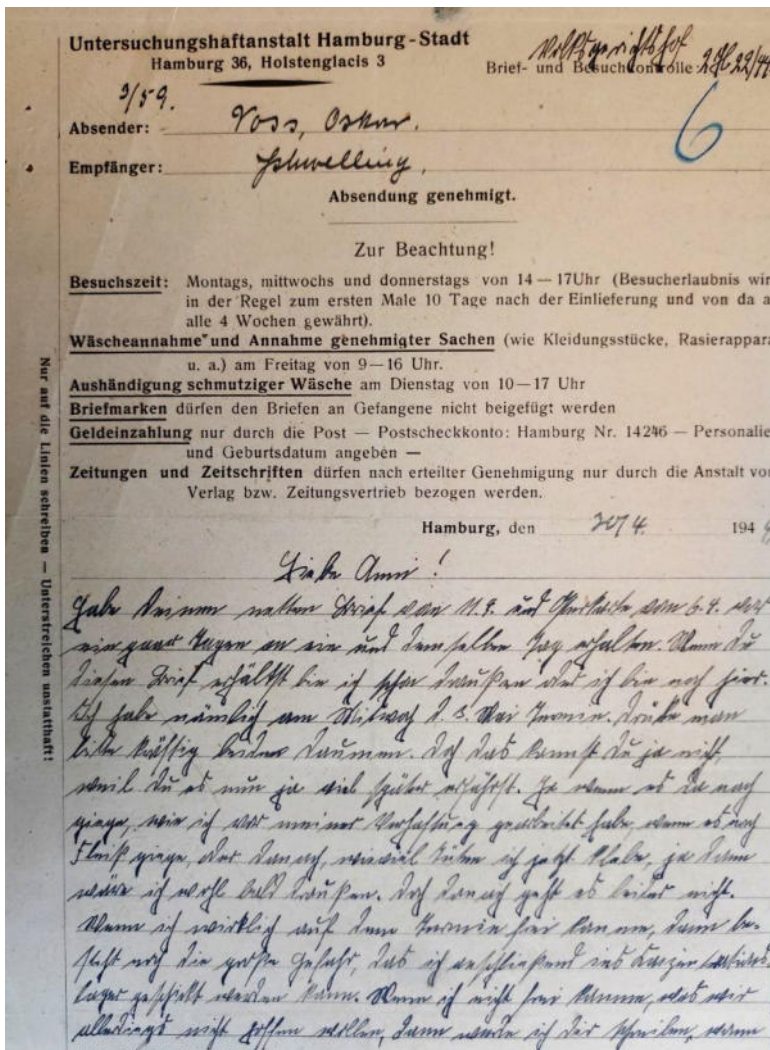 Untersuchungshaftanstalt Hamburg-Stadt
Hamburg 36, Holstenglacis 3
Volksgerichtshof
Brief- und Besuchkontrolle: 22/44
9/59.
Absender: Voss, Oskar.
6
Empfänger:
Absendung genehmigt.
Zur Beachtung!
Besuchszeit: Montags, mittwochs und donnerstags von 14—17Uhr (Besucherlaubnis wir
in der Regel zum ersten Male 10 Tage nach der Einlieferung und von da a
alle 4 Wochen gewährt).
Wäscheannahme und Annahme genehmigter Sachen (wie Kleidungsstücke, Rasierappara
u. a.) am Freitag von 9—16 Uhr.
Aushändigung schmutziger Wäsche am Dienstag von 10—17 Uhr
Briefmarken dürfen den Briefen an Gefangene nicht beigefügt werden
Geldeinzahlung nur durch die Post — Postscheckkonto: Hamburg Nr. 14246 — Personalie
und Geburtsdatum angeben —
Zeitungen und Zeitschriften dürfen nach erteilter Genehmigung nur durch die Anstalt vo
Verlag bzw. Zeitungsvertrieb bezogen werden.
Nur auf die Linien schreiben — Unterstreichen unstatthaft!
Hamburg, den 30/4. 194
Liebe Anni!
Habe Deinen netten Brief von 11.4. und Osterkarte vom 6.4. vor
ein paar Tagen an ein und demselben Tag erhalten. Wenn Du
diesen Brief erhältst bin ich schon draußen oder ich bin noch hier.
Ich habe nämlich am Mitwoch d. 3. Mai Termin. Drücke man
bitte kräftig beide Daumen. Doch das kannst Du ja nicht,
weil Du es nun ja viel später erfährst. Ja wenn es da nach
ginge, wie ich vor meiner Verhaftung gearbeitet habe, wenn es nach
Fleiß ginge, oder danach, wieviel Tüten ich jetzt klebe, ja dann
wäre ich wohl bald draußen. Doch danach geht es leider nicht.
Wenn ich wirklich auf dem Termin frei komme, dann be-
steht noch die große Gefahr, das ich anschließend ins Konzentrations-
lager geschickt werden kann. Wenn ich nicht frei komme, was wir
allerdings nicht hoffen wollen, dann werde ich dir schreiben, wann